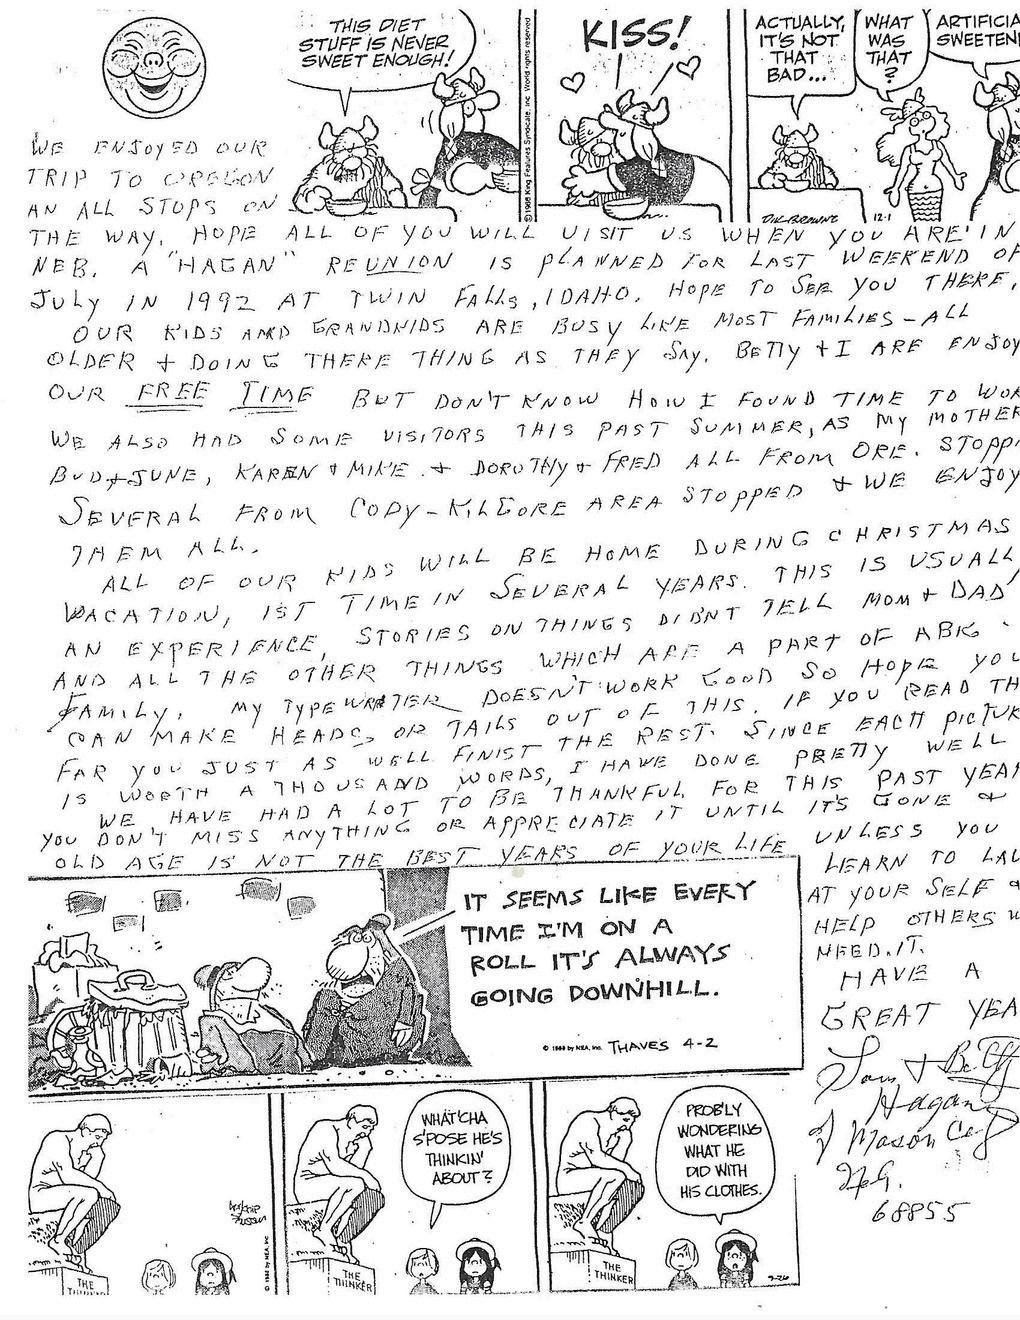 THIS DIET
STUFF IS NEVER
SWEET ENOUGH!
KISS!
ACTUALLY,
IT'S NOT
THAT
BAD...
WHAT
WAS
THAT
?
ARTIFICIA
SWEETEN
© 1988 King Features Syndicate, Inc World rights reserved
DIK BROWNE
12-1
WE ENJOYED OUR
TRIP TO OREGON
AN ALL STOPS ON
THE WAY. HOPE ALL OF YOU WILL VISIT US WHEN YOU ARE IN
NEB. A "HAGAN" REUNION IS PLANNED FOR LAST WEEKEND OF
JULY IN 1992 AT TWIN FALLS, IDAHO. HOPE TO SEE YOU THERE.
OUR KIDS AND GRANDKIDS ARE BUSY LIKE MOST FAMILIES - ALL
OLDER + DOING THERE THING AS THEY SAY. BETTY + I ARE ENJOY
OUR FREE TIME BUT DON'T KNOW HOW I FOUND TIME TO WOR
WE ALSO HAD SOME VISITORS THIS PAST SUMMER, AS MY MOTHER
BUD + JUNE, KAREN + MIKE + DOROTHY + FRED ALL FROM ORE. STOPP
SEVERAL FROM CODY - KILGORE AREA STOPPED + WE ENJOY
THEM ALL.
ALL OF OUR KIDS WILL BE HOME DURING CHRISTMAS
VACATION, 1ST TIME IN SEVERAL YEARS. THIS IS USUALL
AN EXPERIENCE, STORIES ON THINGS DIDN'T TELL MOM + DAD
AND ALL THE OTHER THINGS WHICH ARE A PART OF A BIG
FAMILY. MY TYPEWRITER DOESN'T WORK GOOD SO HOPE YOU
CAN MAKE HEADS OR TAILS OUT OF THIS. IF YOU READ TH
FAR YOU JUST AS WELL FINIST THE REST. SINCE EACH PICTUR
IS WORTH A THOUSAND WORDS, I HAVE DONE PRETTY WELL
WE HAVE HAD A LOT TO BE THANKFUL FOR THIS PAST YEAR
YOU DON'T MISS ANYTHING OR APPRECIATE IT UNTIL IT'S GONE +
OLD AGE IS NOT THE BEST YEARS OF YOUR LIFE UNLESS YOU
LEARN TO LAU
AT YOUR SELF +
HELP OTHERS W
NEED IT.
HAVE A
GREAT YEA
IT SEEMS LIKE EVERY
TIME I'M ON A
ROLL IT'S ALWAYS
GOING DOWNHILL.
© 1988 by NEA, Inc. THAVES 4-2
Tom + Betty
Hagan
of Mason City
Neb.
68855
WHAT'CHA
S'POSE HE'S
THINKIN'
ABOUT?
PROB'LY
WONDERING
WHAT HE
DID WITH
HIS CLOTHES.
THE
THINKER
THE
THINKER
THE
THINKER
9-26